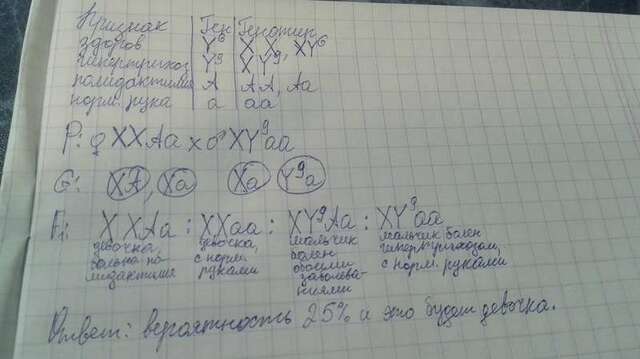 Признак | Ген | Генотип
здоров | Y^б | XX, XY^б
гипертрихоз | Y^г | XY^г
полидактилия | A | AA, Aa
норм. рука | a | aa
P: ♀ XXAa x ♂ XY^гaa
G: XA, Xa Xa Y^гa
F₁: XXAa : XXaa : XY^гAa : XY^гaa
девочка, девочка, мальчик мальчик болен
больна по- с норм. болен гипертрихозом,
лидактилия руками обоими с норм. руками
заболева-
ниями
Ответ: вероятность 25% и это будет девочка.